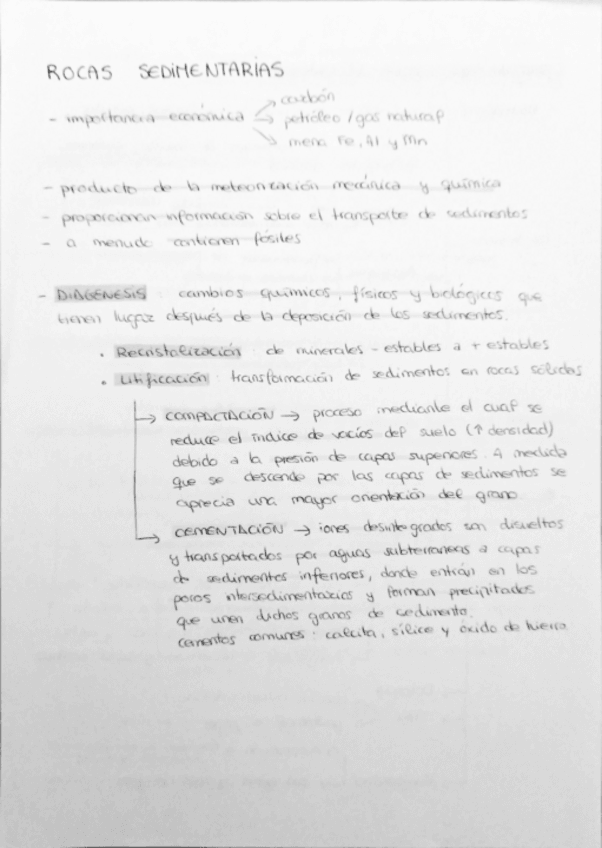 ROCAS SEDIMENTARIAS
- importancia económica → carbón
→ petróleo / gas natural
→ mena Fe, Al y Mn
- producto de la meteorización mecánica y química
- proporcionan información sobre el transporte de sedimentos
- a menudo contienen fósiles
- DIAGÉNESIS : cambios químicos, físicos y biológicos que
tienen lugar después de la deposición de los sedimentos.
• Recristalización : de minerales - estables a + estables
• Litificación : transformación de sedimentos en rocas sólidas
→ COMPACTACIÓN → proceso mediante el cual se
reduce el índice de vacíos del suelo (↑ densidad)
debido a la presión de capas superiores. A medida
que se desciende por las capas de sedimentos se
aprecia una mayor orientación del grano.
→ CEMENTACIÓN → iones desintegrados son disueltos
y transportados por aguas subterraneas a capas
de sedimentos inferiores, donde entran en los
poros intersedimentarios y forman precipitados
que unen dichos granos de sedimento.
cementos comunes : calcita, sílice y óxido de hierro.